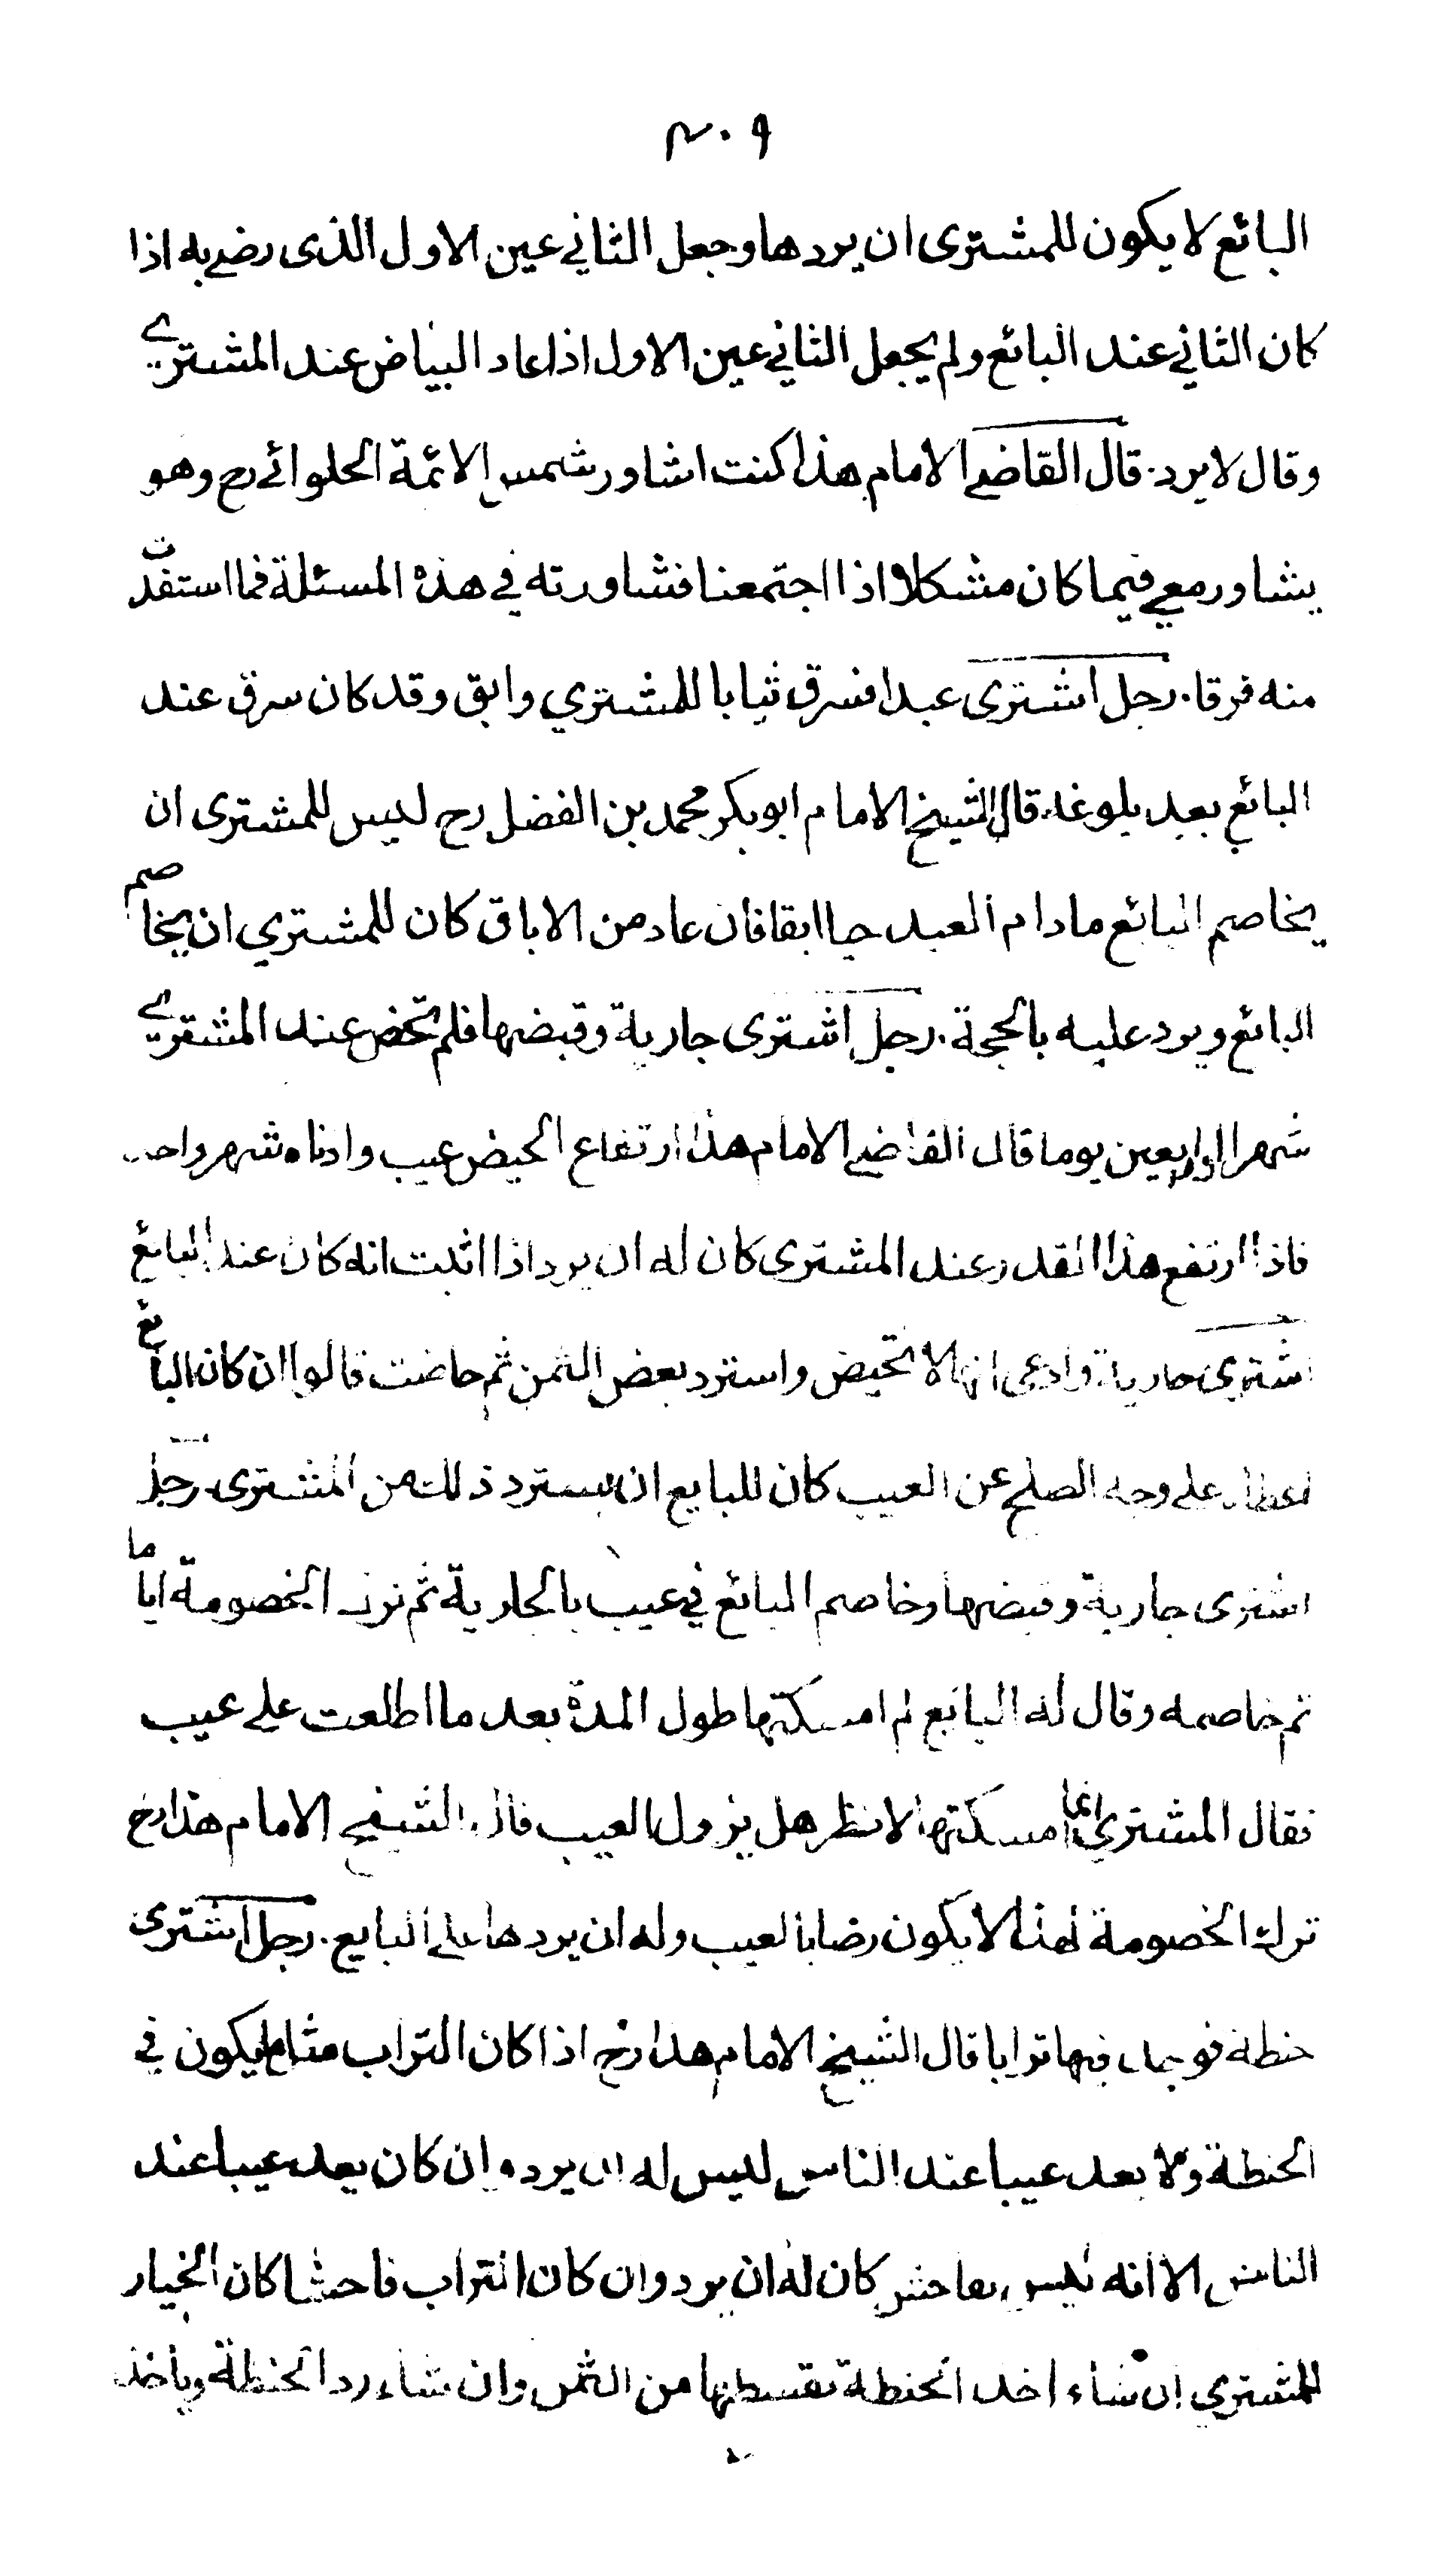 ٣٠٩
البائع لا يكون للمشترى ان يردها وجعل الثاني عين الاول الذى رضي به اذا
كان الثاني عند البائع ولم يجعل الثاني عين الاول اذا عاد البياض عند المشتري
وقال لا يرد. قال القاضي الامام هذا كنت اشاور شمس الائمة الحلوائي رح وهو
يشاور معي فيما كان مشكلا اذا اجتمعنا فشاورته في هذه المسئلة فما استفدت
منه فرقا. رجل اشترى عبدا فسرق ثيابا للمشتري وابق وقد كان سرق عند
البائع بعد بلوغه. قال الشيخ الامام ابو بكر محمد بن الفضل رح ليس للمشترى ان
يخاصم البائع مادام العبد حيا ابقا فان عاد من الاباق كان للمشتري ان يخاصم
البائع ويرد عليه بالحجة. رجل اشترى جارية وقبضها فلم تحض عند المشتري
شهرا او اربعين يوما قال القاضي الامام هذا ارتفاع الحيض عيب وادناه شهر واحد
فاذا ارتفع هذا القدر عند المشترى كان له ان يرد اذا اثبت انه كان عند البائع
اشترى جارية وادعى انها لا تحيض واسترد بعض الثمن ثم حاضت قالوا ان كان البائع
اعطاه على وجه الصلح عن العيب كان للبايع ان يسترد ذلك من المشترى. رجل
اشترى جارية وقبضها وخاصم البائع في عيب بالجارية ثم ترك الخصومة اياما
ثم خاصمه وقال له البائع لم امسكتها طول المدة بعد ما اطلعت على عيب
فقال المشتري انما امسكتها لانظر هل يزول العيب قال الشيخ الامام هذا رح
ترك الخصومة لهذا لا يكون رضا بالعيب وله ان يردها على البايع. رجل اشترى
حنطة فوجد فيها ترابا قال الشيخ الامام هذا رح اذا كان التراب مثل ما يكون في
الحنطة ولا يعد عيبا عند الناس ليس له ان يرد وان كان يعد عيبا عند
الناس الا انه ليس بفاحش كان له ان يرد وان كان التراب فاحشا كان الخيار
للمشتري ان شاء اخذ الحنطة بقسطها من الثمن وان شاء رد الحنطة ويأخذ